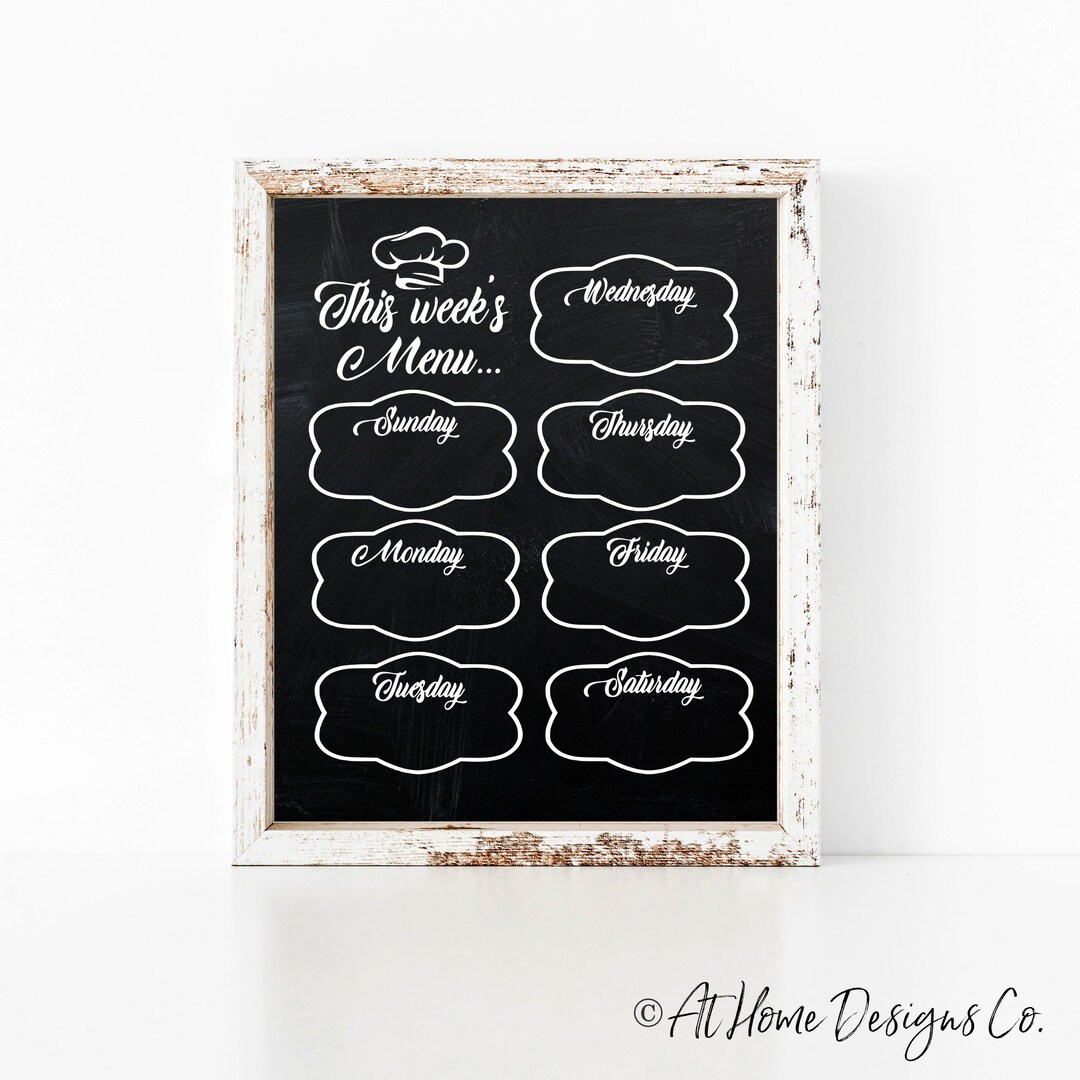 This week's
Menu...
Sunday
Monday
Tuesday
Wednesday
Thursday
Friday
Saturday
© At Home Designs Co.